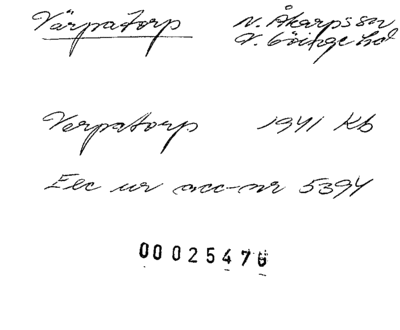 Värpatorp
N. Åkarps sn
V. Göinge hd
Verpatorp 1941 Kb
Exc ur acc-nr 5394
00025476